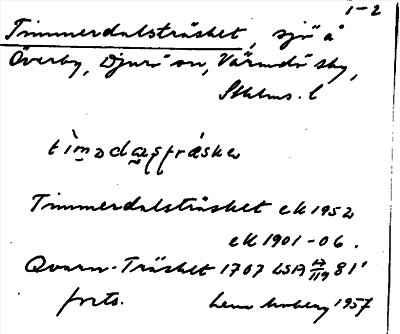 1-2
Timmerdalsträsket, sjö å
Överby, Djurö sn, Värmdö sky,
Sthlms. l
Timmerdalsträsket ek 1952
ek 1901-06.
Qvarn-Träsket 1707 LSA 81'
forts. 1957